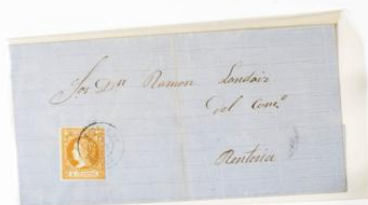 Sor Dn Ramon Londaiz
del Comº
Renteria